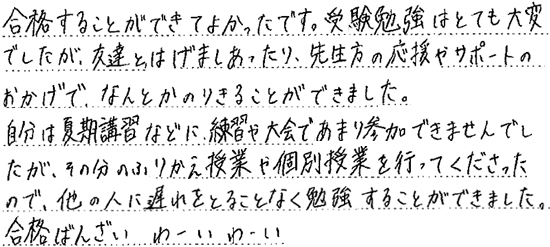 合格することができてよかったです。受験勉強はとても大変
でしたが、友達とはげましあったり、先生方の応援やサポートの
おかげで、なんとかのりきることができました。
自分は夏期講習などに、練習や大会であまり参加できませんでし
たが、その分のふりかえ授業や個別授業を行ってくださった
ので、他の人に遅れをとることなく勉強することができました。
合格ばんざい わーいわーい